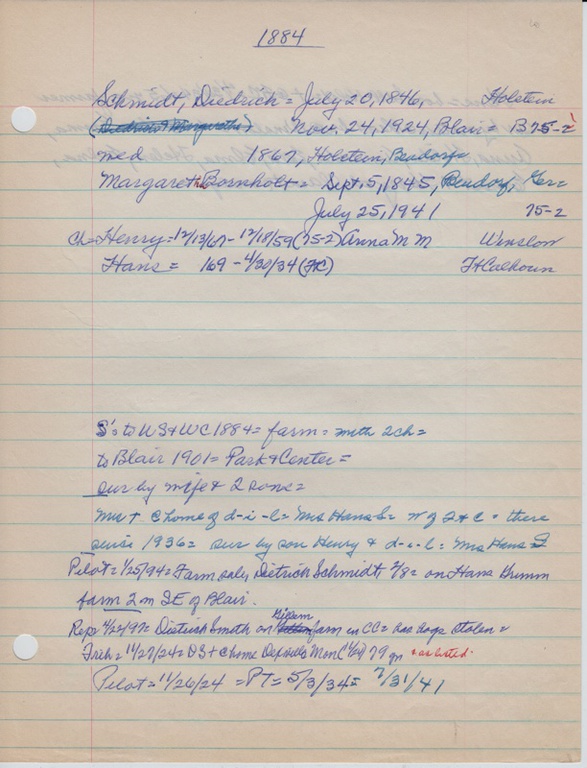 1884
Schmidt, Diedrich = July 20, 1846, Holstein
(Diedrich & Margaretha) Nov. 24, 1924, Blair = B75-2
med 1867, Holstein,
Margaretha Bornholt = Sept. 5, 1845, Beudorf, Ger=
July 25, 1941 75-2
Ch= Henry = 12/13/67 - 12/18/59 (75-2) Anna M M Winslow
Hans = 169 - 4/30/34 (FC) Ft Calhoun
S's to US & WC 1884 = farm = with 2 ch =
to Blair 1901 = Park & Center =
sur by wife & 2 sons =
Mrs + @ home of d-i-l = Mrs Hans S = N of 2 & C = there
since 1936 = sur by son Henry & d-i-l = Mrs Hans S
Pilot = 1/25/94 = Farm sale, Dietrich Schmidt, 2/8 = on Hans Grimm
farm 2 m SE of Blair.
Rep: 4/22/97 = Dietrich Smith on farm in CC = has hogs stolen =
= 11/27/24 = DS + @ home Mon (11/24) 79 yr as listed.
Pilot = 11/26/24 = PT = 5/3/34 = 7/31/41